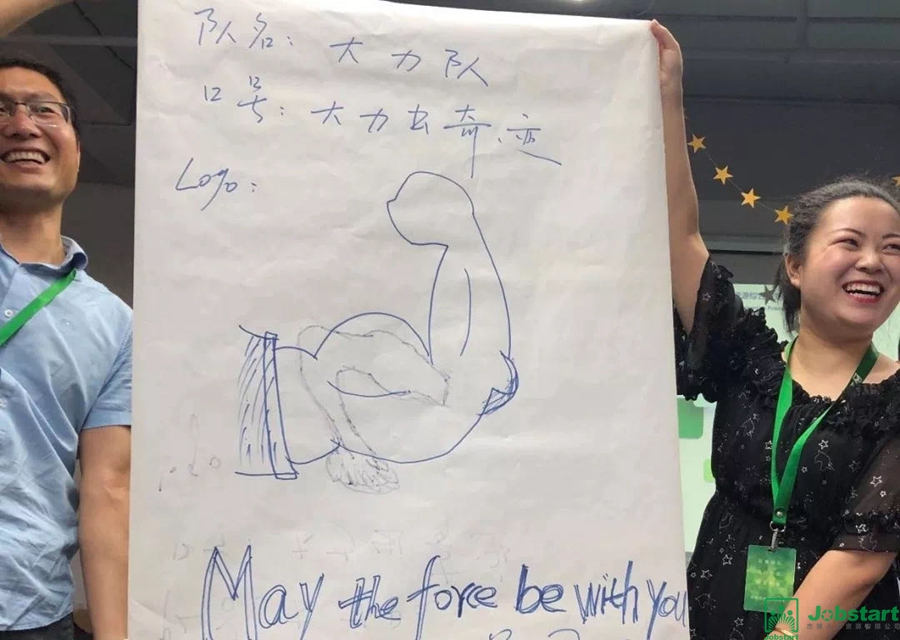 队名: 大力队
口号: 大力出奇迹
Logo:
May the force be with you
Jobstart